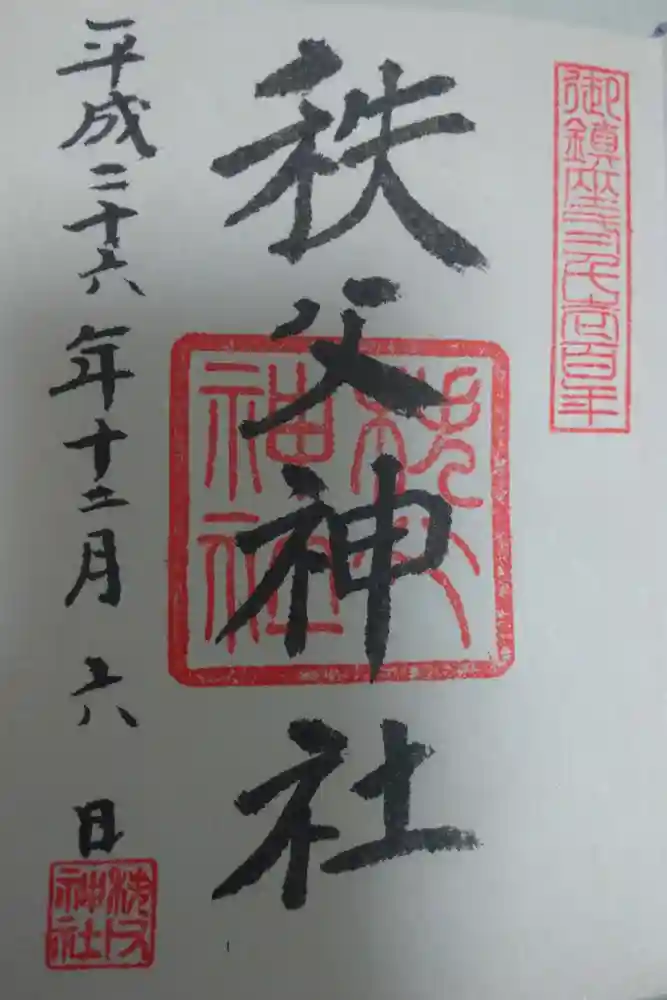 御鎮座弐千壱百年
秩父神社
秩父
神社
平成二十六年十二月六日
秩父
神社